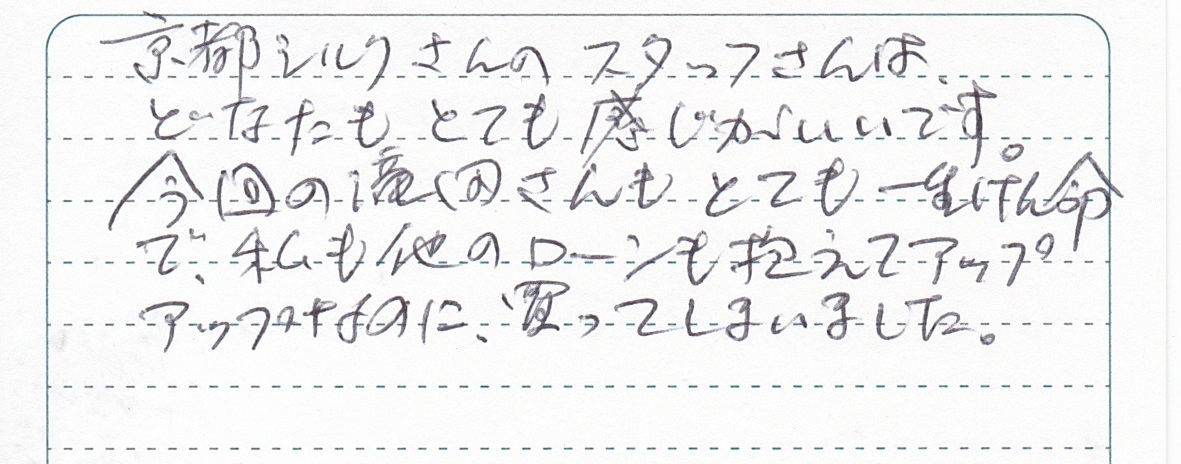 京都シルクさんのスタッフさんは、
どなたもとても感じがいいです。
今回の滝田さんもとても一生けん命
で、私も他のローンも抱えてアップ
アップなのに、買ってしまいました。